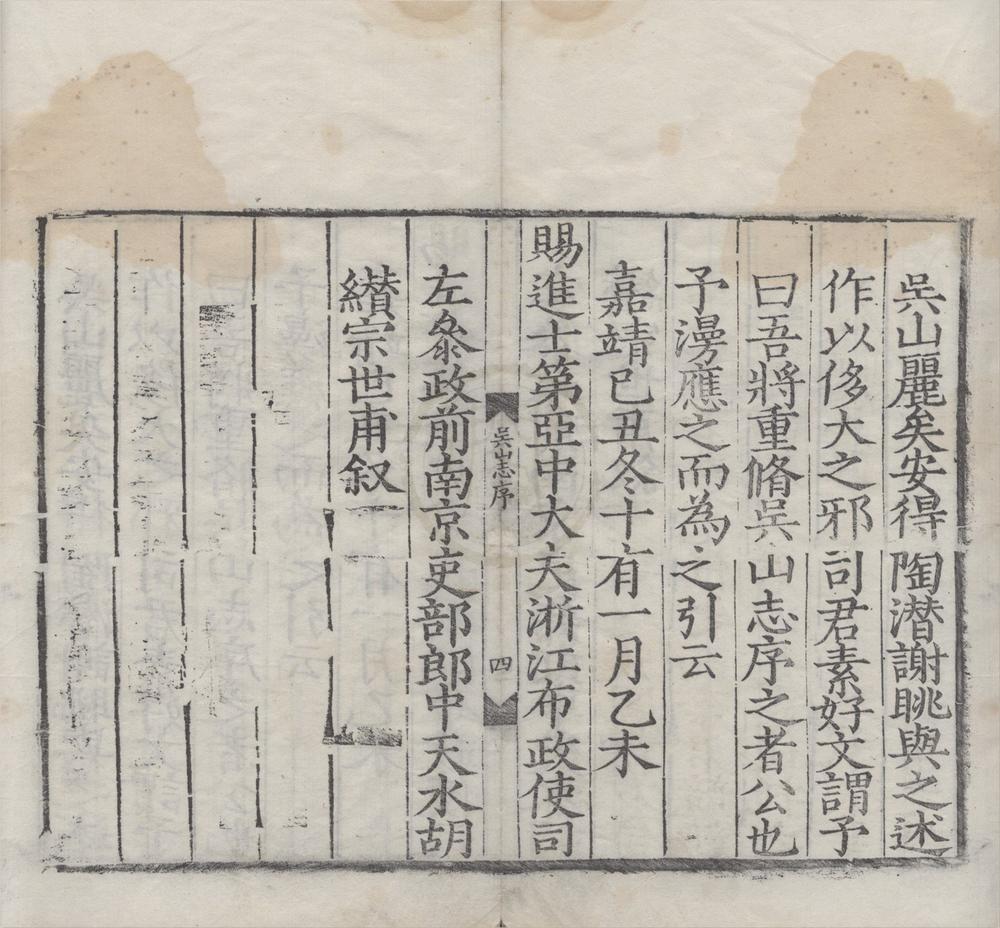 吳山麗矣安得陶潛謝眺與之述
作以侈大之邪司君素好文謂予
曰吾將重脩吳山志序之者公也
予漫應之而為之引云
嘉靖己丑冬十有一月乙未
賜進士第亞中大夫浙江布政使司
吳山志序
四
左叅政前南京吏部郎中天水胡
纘宗世甫叙